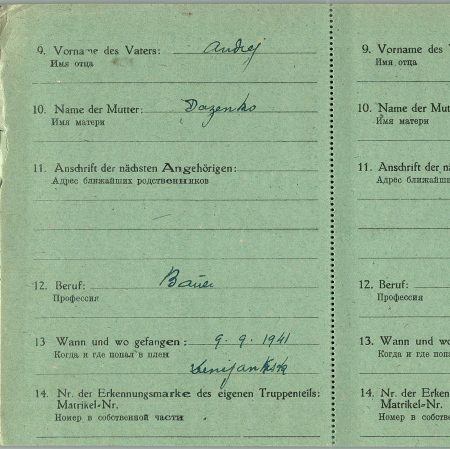 9. Vorname des Vaters: Andrej
Имя отца
10. Name der Mutter: Dozenko
Имя матери
11. Anschrift der nächsten Angehörigen:
Адрес ближайших родственников
12. Beruf: Bauer
Профессия
13 Wann und wo gefangen: 9. 9. 1941
Когда и где попал в плен
14. Nr. der Erkennungsmarke des eigenen Truppenteils:
Matrikel-Nr.
Номер в собственной части
9. Vorname des
Имя отца
10. Name der Mut
Имя матери
11. Anschrift der n
Адрес ближайши
12. Beruf:
Профессия
13. Wann und wo
Когда и где поп
14. Nr. der Erken
Matrikel-Nr.
Номер в собств